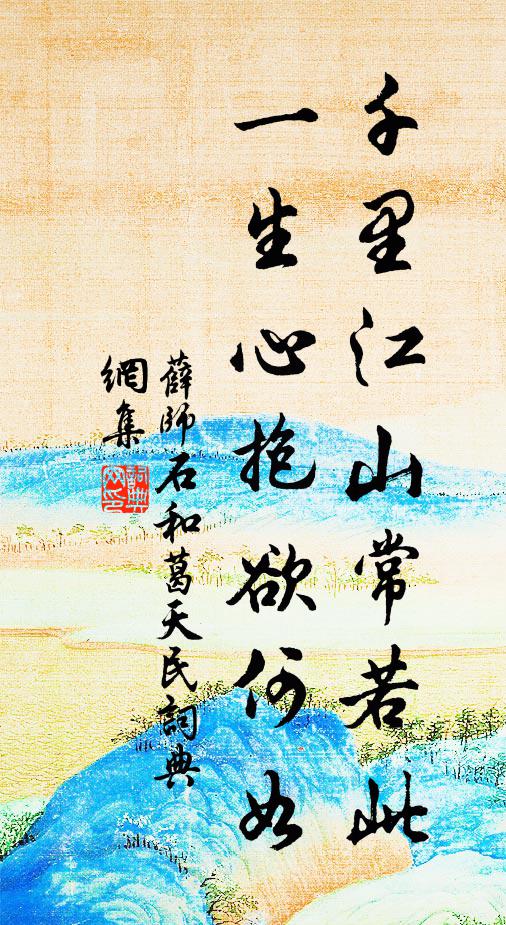 千里江山常若此
一生心抱欲何如
薛師石和葛天民詞典
網集